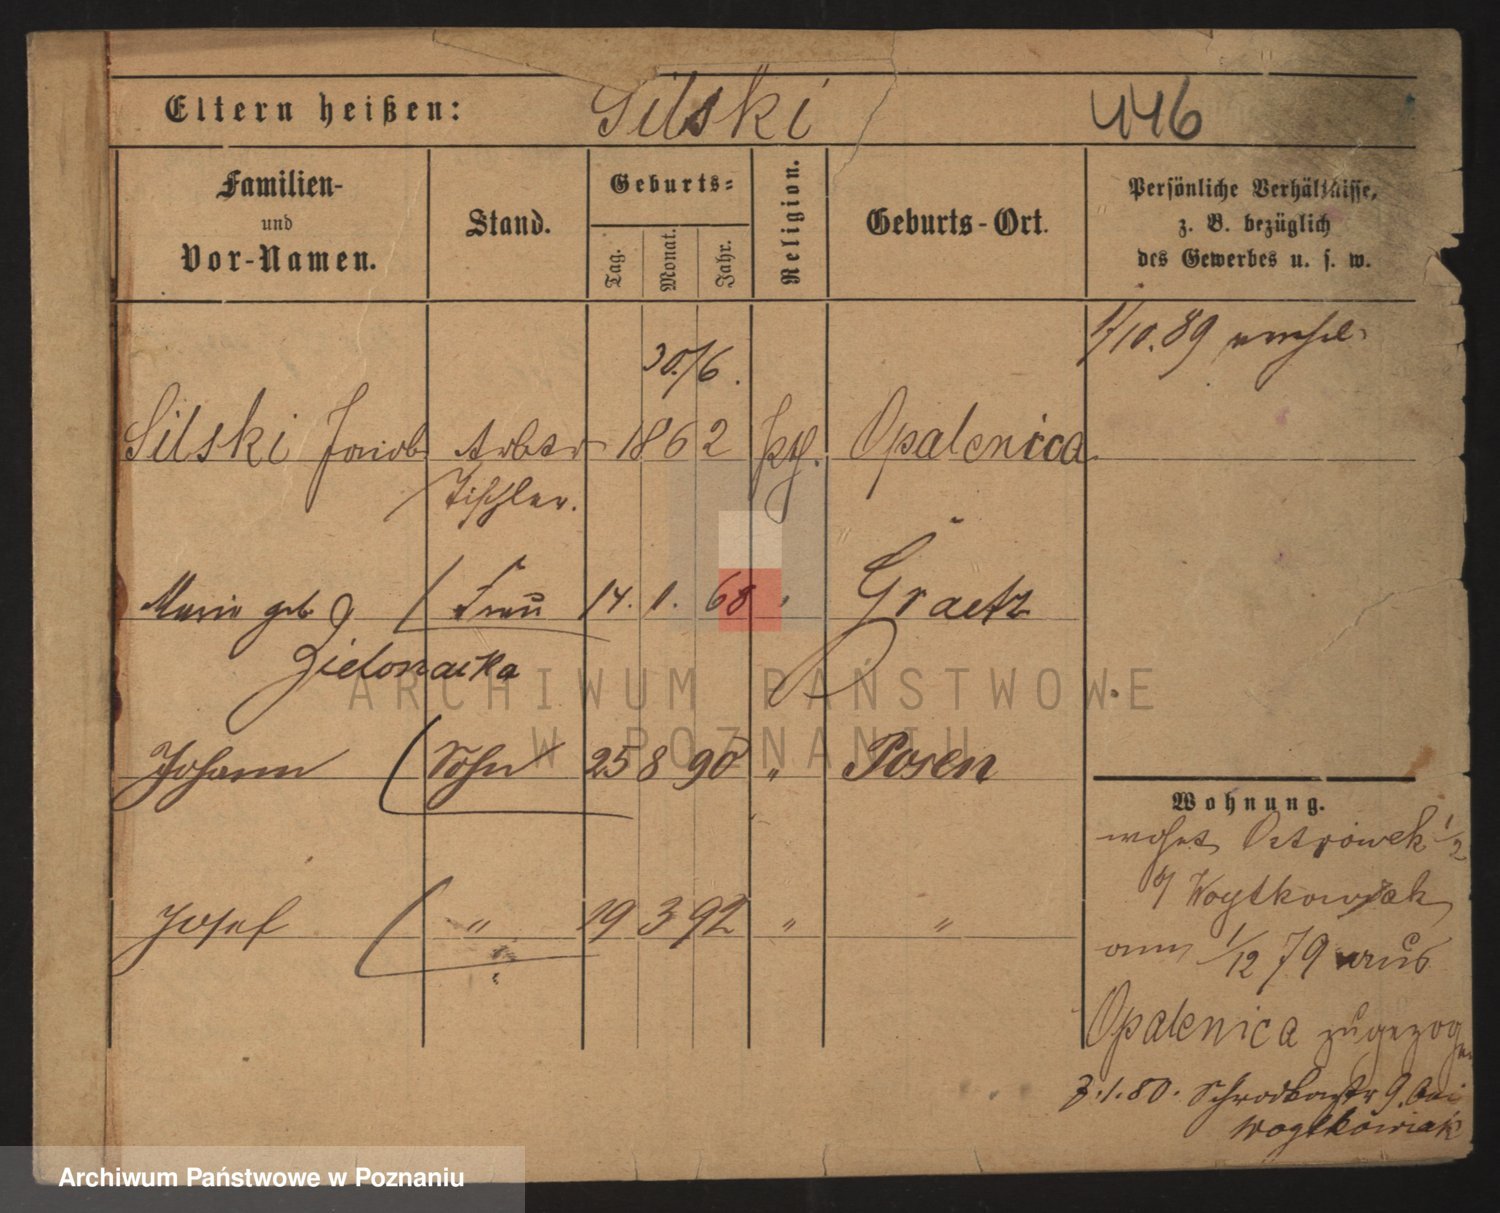 Eltern heißen: Silski 446
Familien-
und
Vor-Namen.
Stand.
Geburts-
Tag.
Monat.
Jahr.
Religion.
Geburts-Ort.
Persönliche Verhältnisse,
z. B. bezüglich
des Gewerbes u. s. w.
1/10.89
30/6.
Silski Jacob Arbtr 1862 Opalenica
Tischler.
Marie geb Frau 14. 1. 68 " Graetz
Zielonacka
Johann Sohn 25 8 90 " Posen
Josef " 19 3 92 " "
Wohnung.
wohnt Ostrowek 1/2
b/ Woytkowiak
am 1/12 79 aus
Opalenica zugezogen
3.1.80. Schrodkastr 9. bei
Woytkowiak
ARCHIWUM PAŃSTWOWE
W POZNANIU
Archiwum Państwowe w Poznaniu